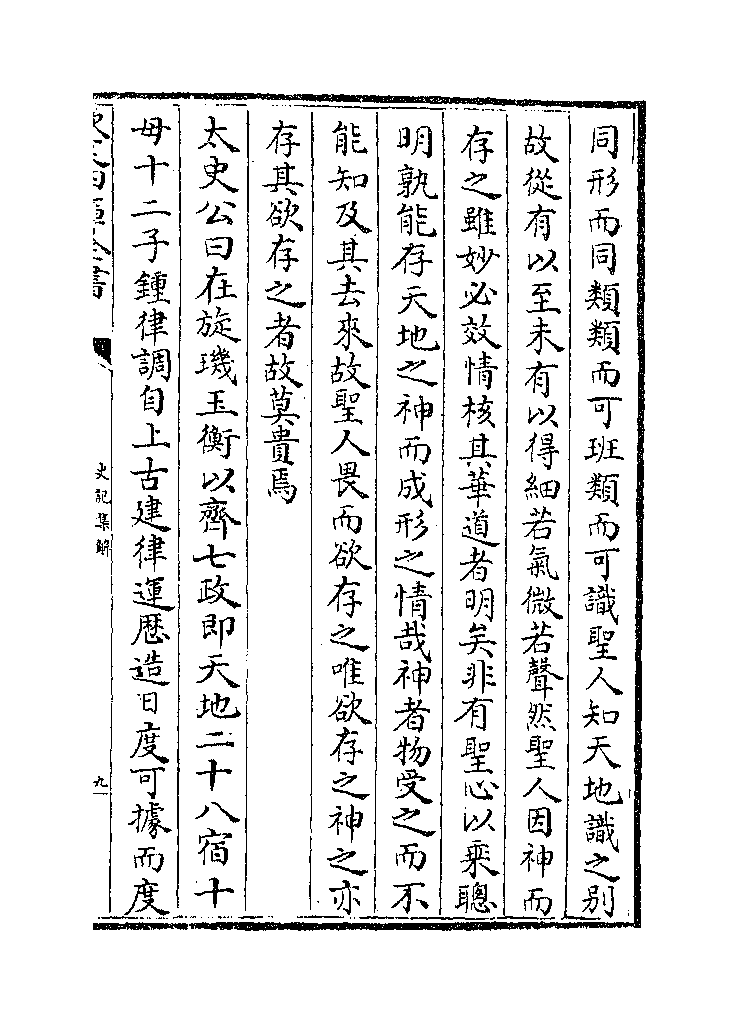 同形而同類類而可班類而可識聖人知天地識之别
故從有以至未有以得細若氣微若聲然聖人因神而
存之雖妙必效情核其華道者明矣非有聖心以乘聰
明孰能存天地之神而成形之情哉神者物受之而不
能知及其去來故聖人畏而欲存之唯欲存之神之亦
存其欲存之者故莫貴焉
太史公曰在旋璣玉衡以齊七政即天地二十八宿十
母十二子鍾律調自上古建律運厯造日度可據而度
史記集解
九